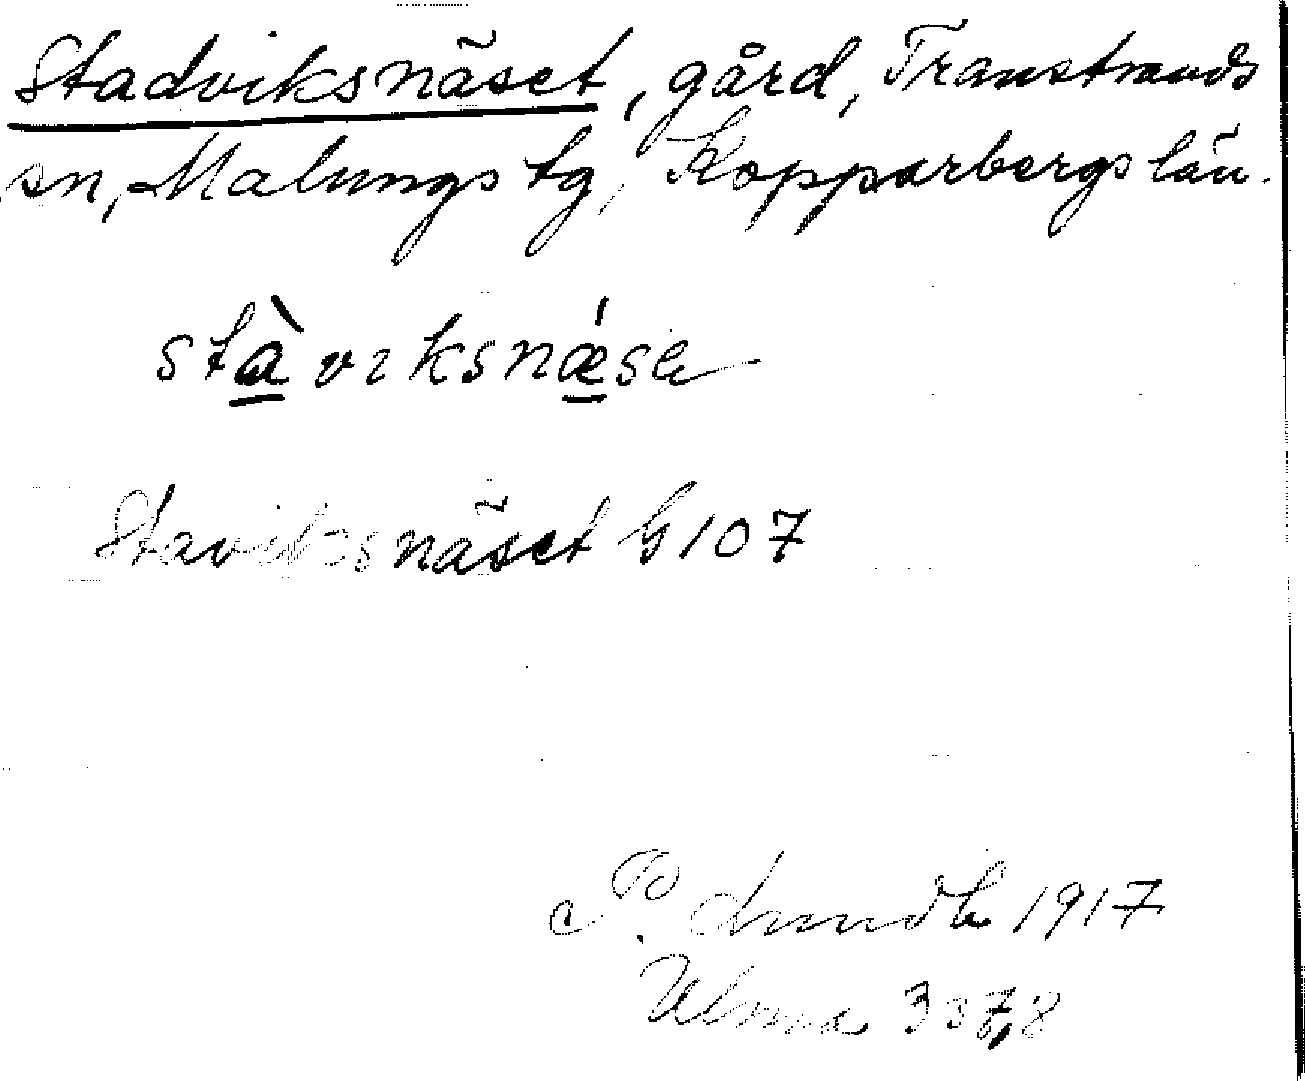 Stadviksnäset, gård, Transtrands
sn, Malungs tg, Kopparbergs län.
stàviksnǽsə
Staviksnäset G 107
P. Lundh 1917
Ulma 337,8